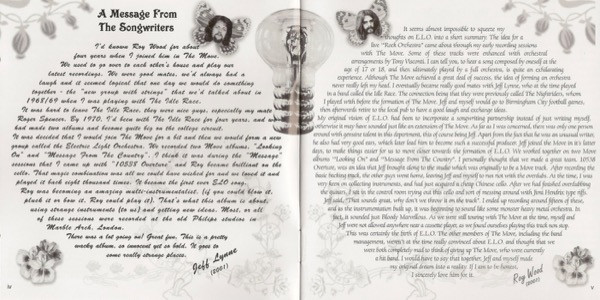 A Message From
The Songwriters
I'd known Roy Wood for about
four years when I joined him in The Move.
We used to go over to each other's house and play our
latest recordings. We were good mates, we'd always had a
laugh and it seemed logical that one day we would do something
together - the "new group with strings" that we'd talked about in
1968/69 when I was playing with The Idle Race.
It was hard to leave The Idle Race, they were nice guys, especially my mate
Roger Spencer. By 1970, I'd been with The Idle Race for four years, and we
had made two albums and become quite big on the college circuit.
It was decided that I would join The Move for a bit and then we would form a new
group called the Electric Light Orchestra. We recorded two Move albums, "Looking
On" and "Message From The Country". I think it was during the "Message"
sessions that I came up with "10538 Overture" and Roy became brilliant on the
cello. That magic combination was all we could have wished for and we loved it and
played it back eight thousand times. It became the first ever ELO song.
Roy was becoming an amazing multi-instrumentalist, (if you could blow it,
pluck it or bow it, Roy could play it). That's what this album is about,
using strange instruments (to us) and getting new ideas. Most, or all
of these sessions were recorded at the old Philips studios in
Marble Arch, London.
There was a lot going on! Great fun. This is a pretty
wacky album, so innocent yet so bold. It goes to
some really strange places.
Jeff Lynne
(2001)
iv
It seems almost impossible to squeeze my
thoughts on E.L.O. into a short summary. The idea for a
live "Rock Orchestra" came about through my early recording sessions
with The Move. Some of these tracks were enhanced with orchestral
arrangements by Tony Visconti. I can tell you, to hear a song composed by myself at the
age of 17 or 18, and then ultimately played by a full orchestra, is quite an exhilarating
experience. Although The Move achieved a great deal of success, the idea of forming an orchestra
never really left my head. I eventually became really good mates with Jeff Lynne, who at the time played
in a band called the Idle Race. The connection being that they were previously called The Nightriders, whom
I played with before the formation of The Move. Jeff and myself would go to Birmingham City football games,
then afterwards retire to the local pub to have a good laugh and exchange ideas.
My original vision of E.L.O. had been to incorporate a songwriting partnership instead of just writing myself,
otherwise it may have sounded just like an extension of The Move. As far as I was concerned, there was only one person
around with genuine talent in this department, this of course being Jeff. Apart from the fact that he was an unusual writer,
he also had very good ears, which later lead him to become such a successful producer. Jeff joined The Move in it's latter
days, to make things easier for us to move closer towards the formation of E.L.O. We worked together on two Move
albums "Looking On" and "Message From The Country". I personally thought that we made a great team. 10538
Overture, was an idea that Jeff brought along to the studio which was originally to be a Move track. After recording the
basic backing track, the other guys went home, leaving Jeff and myself to run riot with the overdubs. At the time, I was
very keen on collecting instruments, and had just acquired a cheap Chinese cello. After we had finished overdubbing
the guitars, I sat in the control room trying out this cello and sort of messing around with Jimi Hendrix type riffs.
Jeff said, "That sounds great, why don't we throw it on the track". I ended up recording around fifteen of these,
and as the instrumentation built up, it was beginning to sound like some monster heavy metal orchestra. In
fact, it sounded just Bloody Marvellous. As we were still touring with The Move at the time, myself and
Jeff were not allowed anywhere near a cassette player, as we found ourselves playing this track non stop.
This was certainly the birth of E.L.O. The other members of The Move, including the band
management, weren't at the time really convinced about E.L.O. and thought that we
were both completely mad to think of giving up The Move, who were currently
a hit band. I would have to say that together, Jeff and myself made
my original dream into a reality. If I am to be famous,
I sincerely love him for it.
Roy Wood
(2001)
v